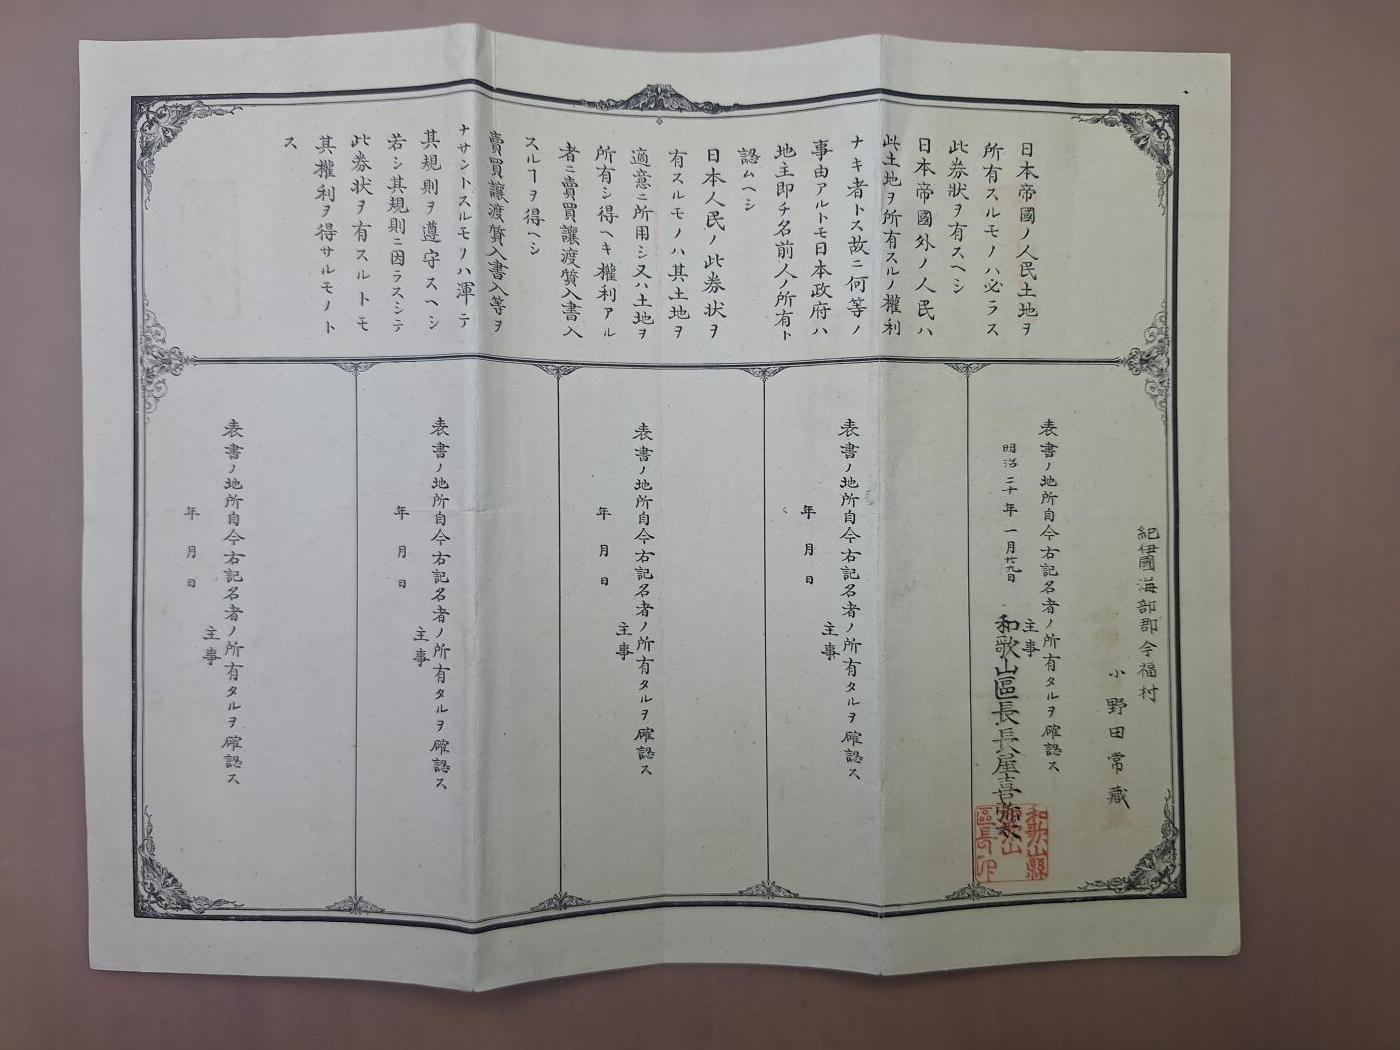 日本帝國ノ人民土地ヲ
所有スルモノハ必ラス
此券狀ヲ有スヘシ
日本帝國外ノ人民ハ
此土地ヲ所有スルノ權利
ナキ者トス故ニ何等ノ
事由アルトモ日本政府ハ
地主即チ名前人ノ所有ト
認ムヘシ
日本人民ノ此券狀ヲ
有スルモノハ其土地ヲ
適意ニ所用シ又ハ土地ヲ
所有シ得ヘキ權利アル
者ニ賣買讓渡質入書入
スルヿヲ得ヘシ
賣買讓渡質入書入等ヲ
ナサントスルモノハ渾テ
其規則ヲ遵守スヘシ
若シ其規則ニ因ラスシテ
此券狀ヲ有スルトモ
其權利ヲ得サルモノト
ス
紀伊國海部郡今福村
小野田常藏
表書ノ地所自今右記名者ノ所有タルヲ確認ス
主事
明治二十年一月廿九日
和歌山區長長屋喜弥太
和歌山縣
和歌山
區長印
表書ノ地所自今右記名者ノ所有タルヲ確認ス
主事
年月日
表書ノ地所自今右記名者ノ所有タルヲ確認ス
主事
年月日
表書ノ地所自今右記名者ノ所有タルヲ確認ス
主事
年月日
表書ノ地所自今右記名者ノ所有タルヲ確認ス
主事
年月日